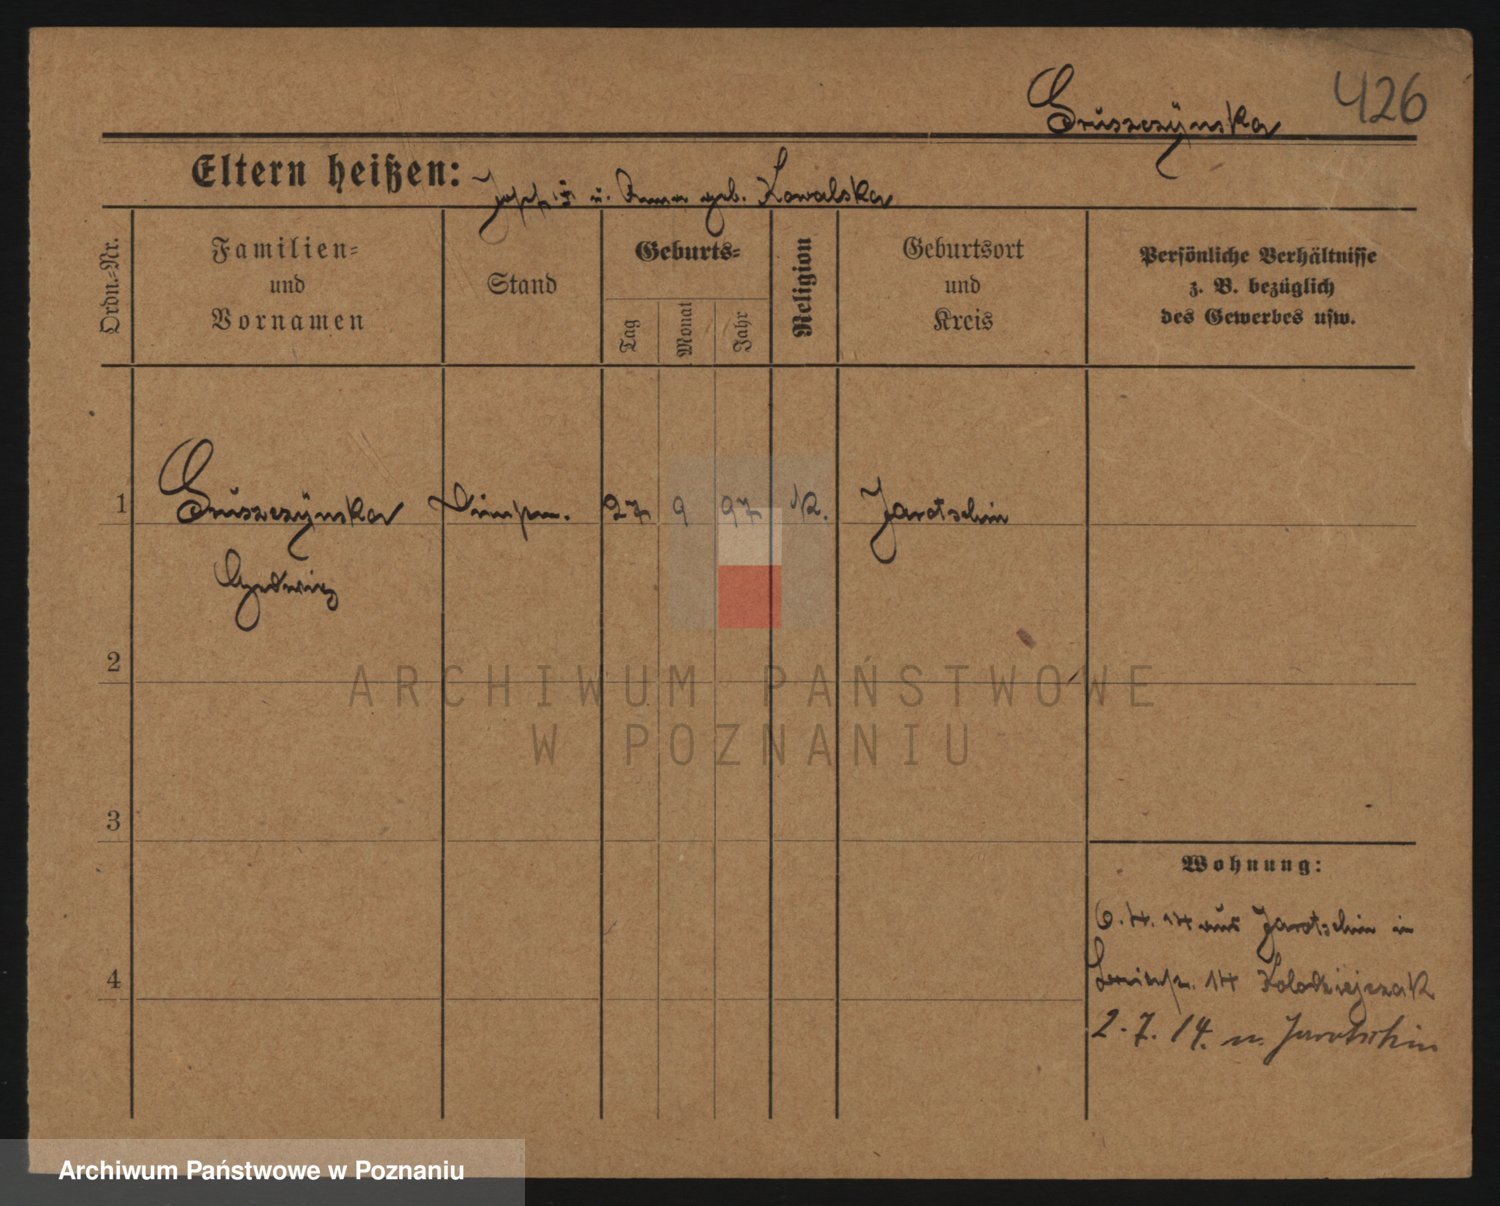 Gruszczÿnska 426
Eltern heißen: Joseph u. Anna geb. Kowalska
Ordn.-Nr.
Familien-
und
Vornamen
Stand
Geburts-
Tag
Monat
Jahr
Religion
Geburtsort
und
Kreis
Persönliche Verhältnisse
z. B. bezüglich
des Gewerbes usw.
1 Gruszczÿnska 27 9 97 K. Jarotschin
Hedwig
2
ARCHIWUM PAŃSTWOWE
W POZNANIU
3
Wohnung:
6.4.14 aus Jarotschin in
4
14 Kolodziejczak
2.7.14. n. Jarotschin
Archiwum Państwowe w Poznaniu